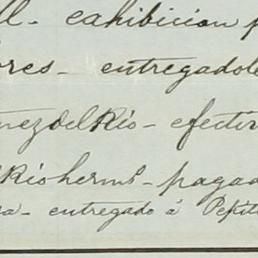 ll. exhibicion p
ores - entregadole
inez del Rio - efectiv
Rio herms - pagad
ra - entregado á Pepit